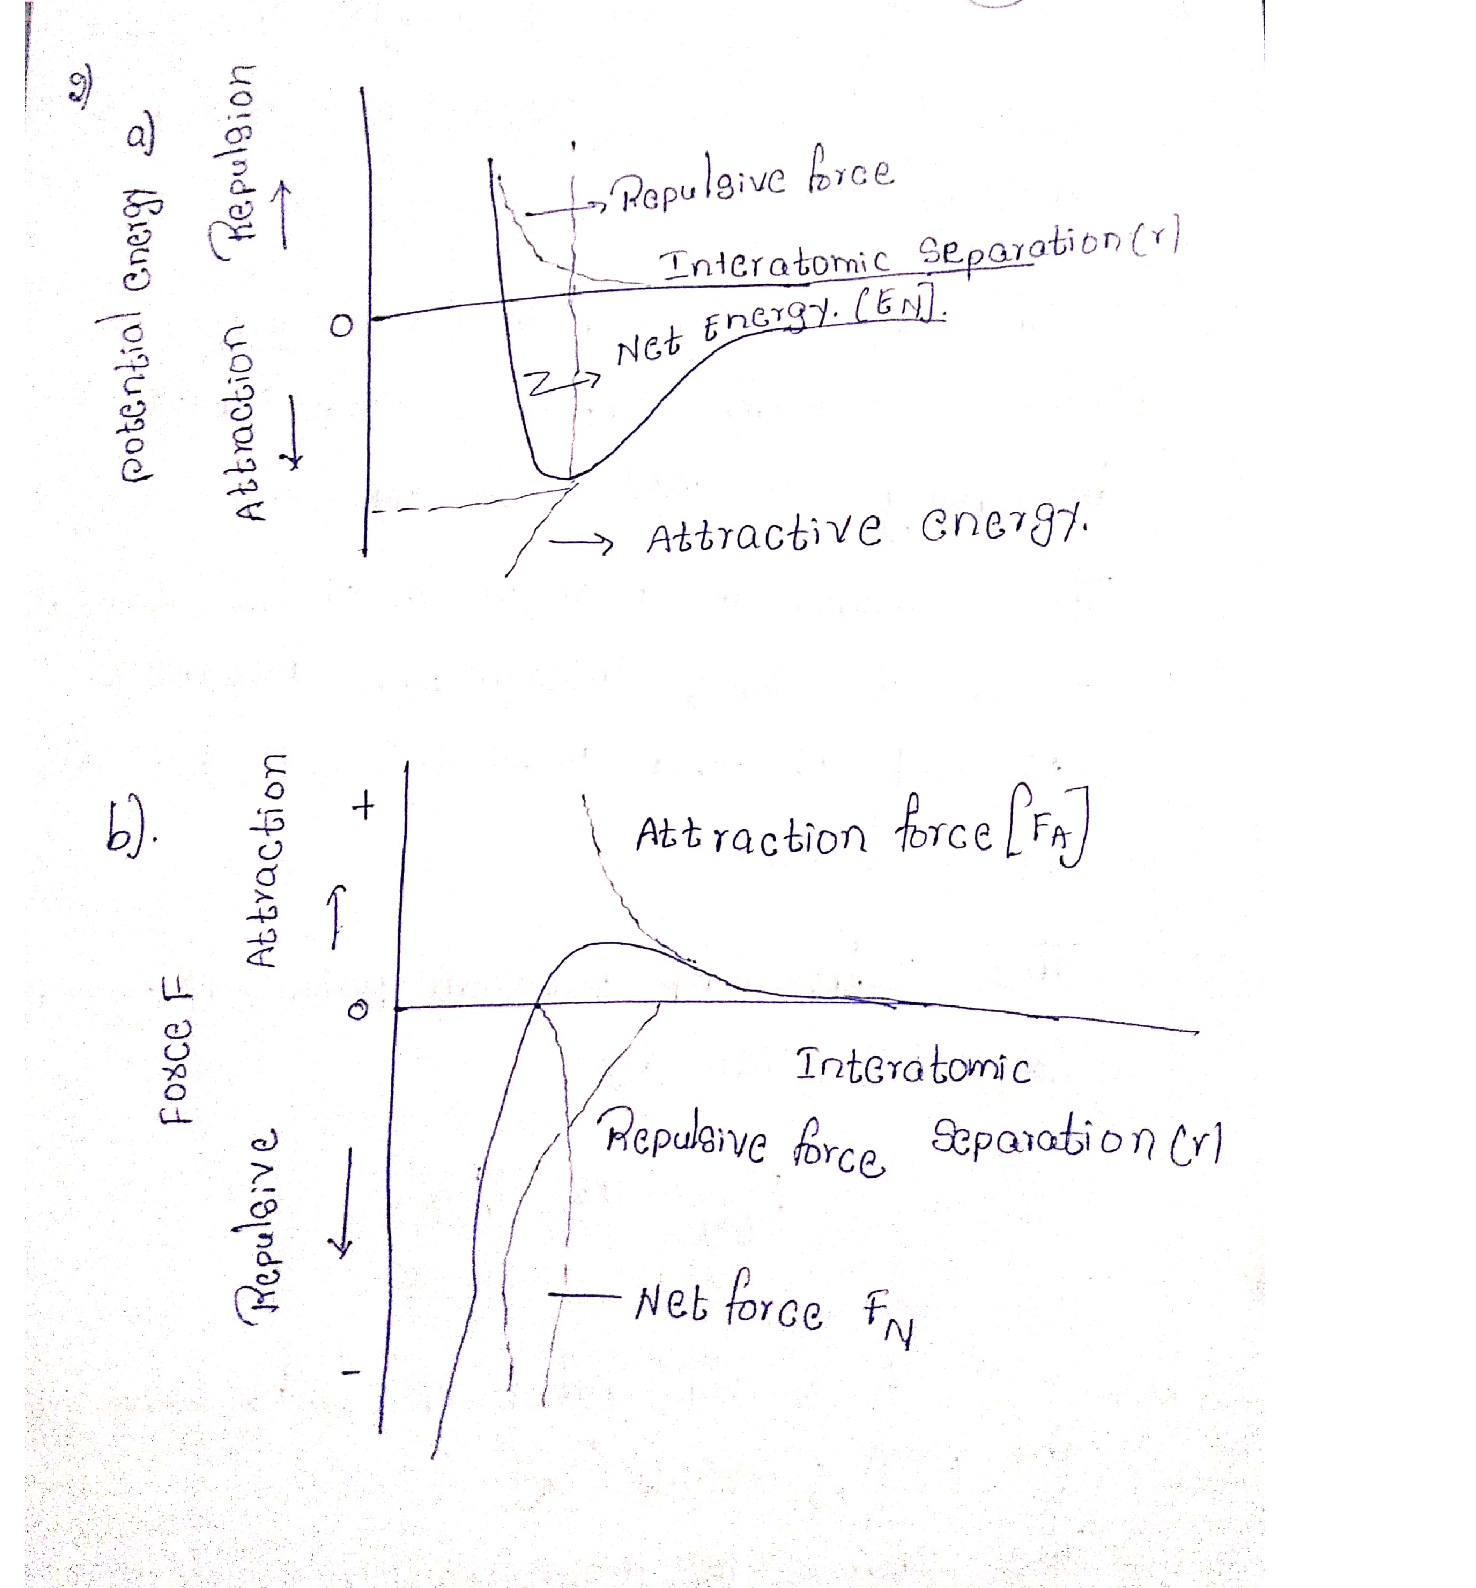 a)
potential energy a)
Repulsion
Attraction
0
Repulsive force
Interatomic Separation (r)
Net Energy. [EN].
Attractive energy.
b).
Force F
Attraction
Repulsive
+
0
-
Attraction force [FA]
Interatomic
Separation (r)
Repulsive force
Net force FN